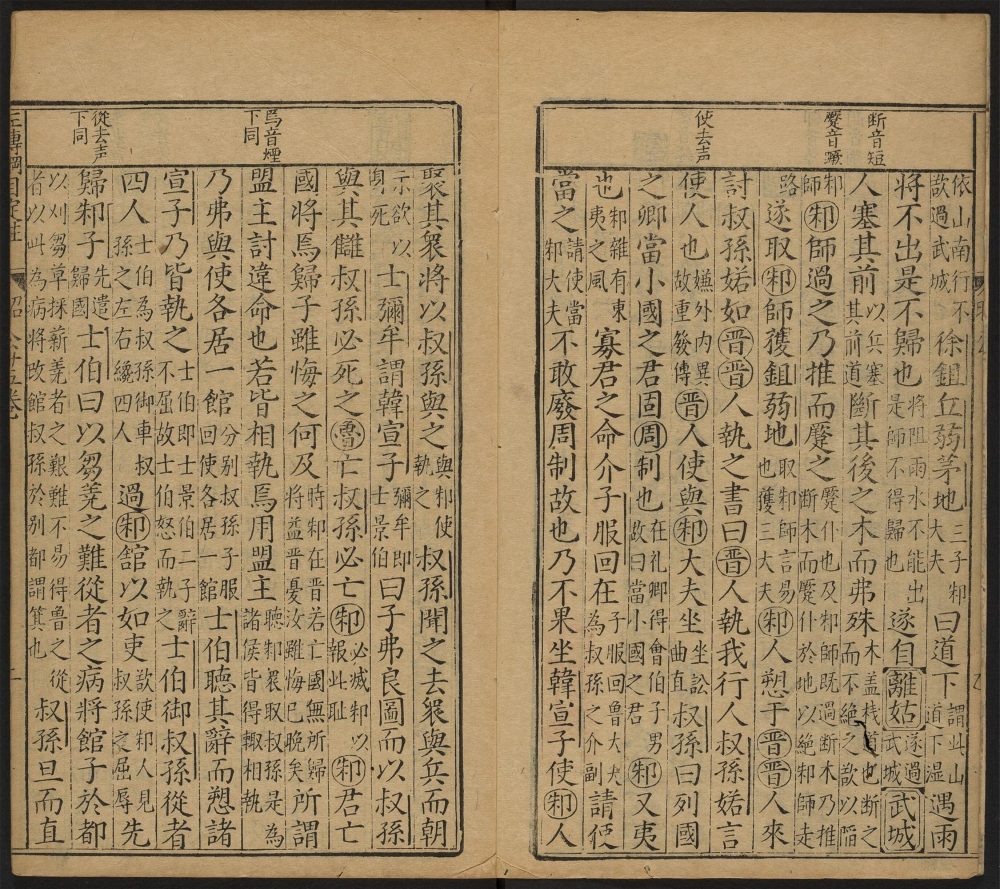 断音短
蹷音厥
使去声
依山南行不欲過武城徐鉏丘弱茅地三子邾大夫曰道下謂此山道下湿遇雨
将不出是不歸也将阻雨水不能出是師不得歸也遂自離姑遂過武城武城
人塞其前以兵塞其前道斷其後之木而弗殊木盖栈道也断之而不絶之欲以陷
邾師邾師過之乃推而蹷之蹷仆也及邾師既過断木乃推断木而蹷仆於地以絶邾師走
路遂取邾師獲鉏弱地取邾師言易也獲三大夫邾人愬于晋晋人來
討叔孫婼如晋晋人執之書曰晋人執我行人叔孫婼言
使人也嫌外内異故重發傳晋人使與邾大夫坐坐訟曲直叔孫曰列國
之卿當小國之君固周制也在礼卿得會伯子男故曰當小國之君邾又夷
也邾雜有東夷之風寡君之命介子服回在子服回魯大夫為叔孫之介副請使
當之請使當邾大夫不敢廢周制故也乃不果坐韓宣子使邾人
焉音煙下同
從去声下同
聚其衆將以叔孫與之與邾使執之叔孫聞之去衆與兵而朝
示欲以身死士彌牟謂韓宣子彌牟即士景伯曰子弗良圖而以叔孫
與其讎叔孫必死之魯亡叔孫必亡邾必滅邾以報此耻邾君亡
國將焉歸子雖悔之何及時邾在晋若亡國無所歸将益晋憂汝雖悔已晚矣所謂
盟主討違命也若皆相執焉用盟主聽邾衆取叔孫是為諸侯皆得輙相執
乃弗與使各居一館分别叔孫子服回使各居一館士伯聽其辭而愬諸
宣子乃皆執之士伯即士景伯二子辭不屈故士伯怒而執之士伯御叔孫從者
四人士伯為叔孫御車叔孫之左右纔四人過邾館以如吏欲使邾人見叔孫之屈辱先
歸邾子先遣歸國士伯曰以芻蕘之難從者之病將館子於都
以刈芻草採薪蕘者之艱難不易得魯之從者以此為病将改館叔孫於别都謂箕也叔孫旦而直